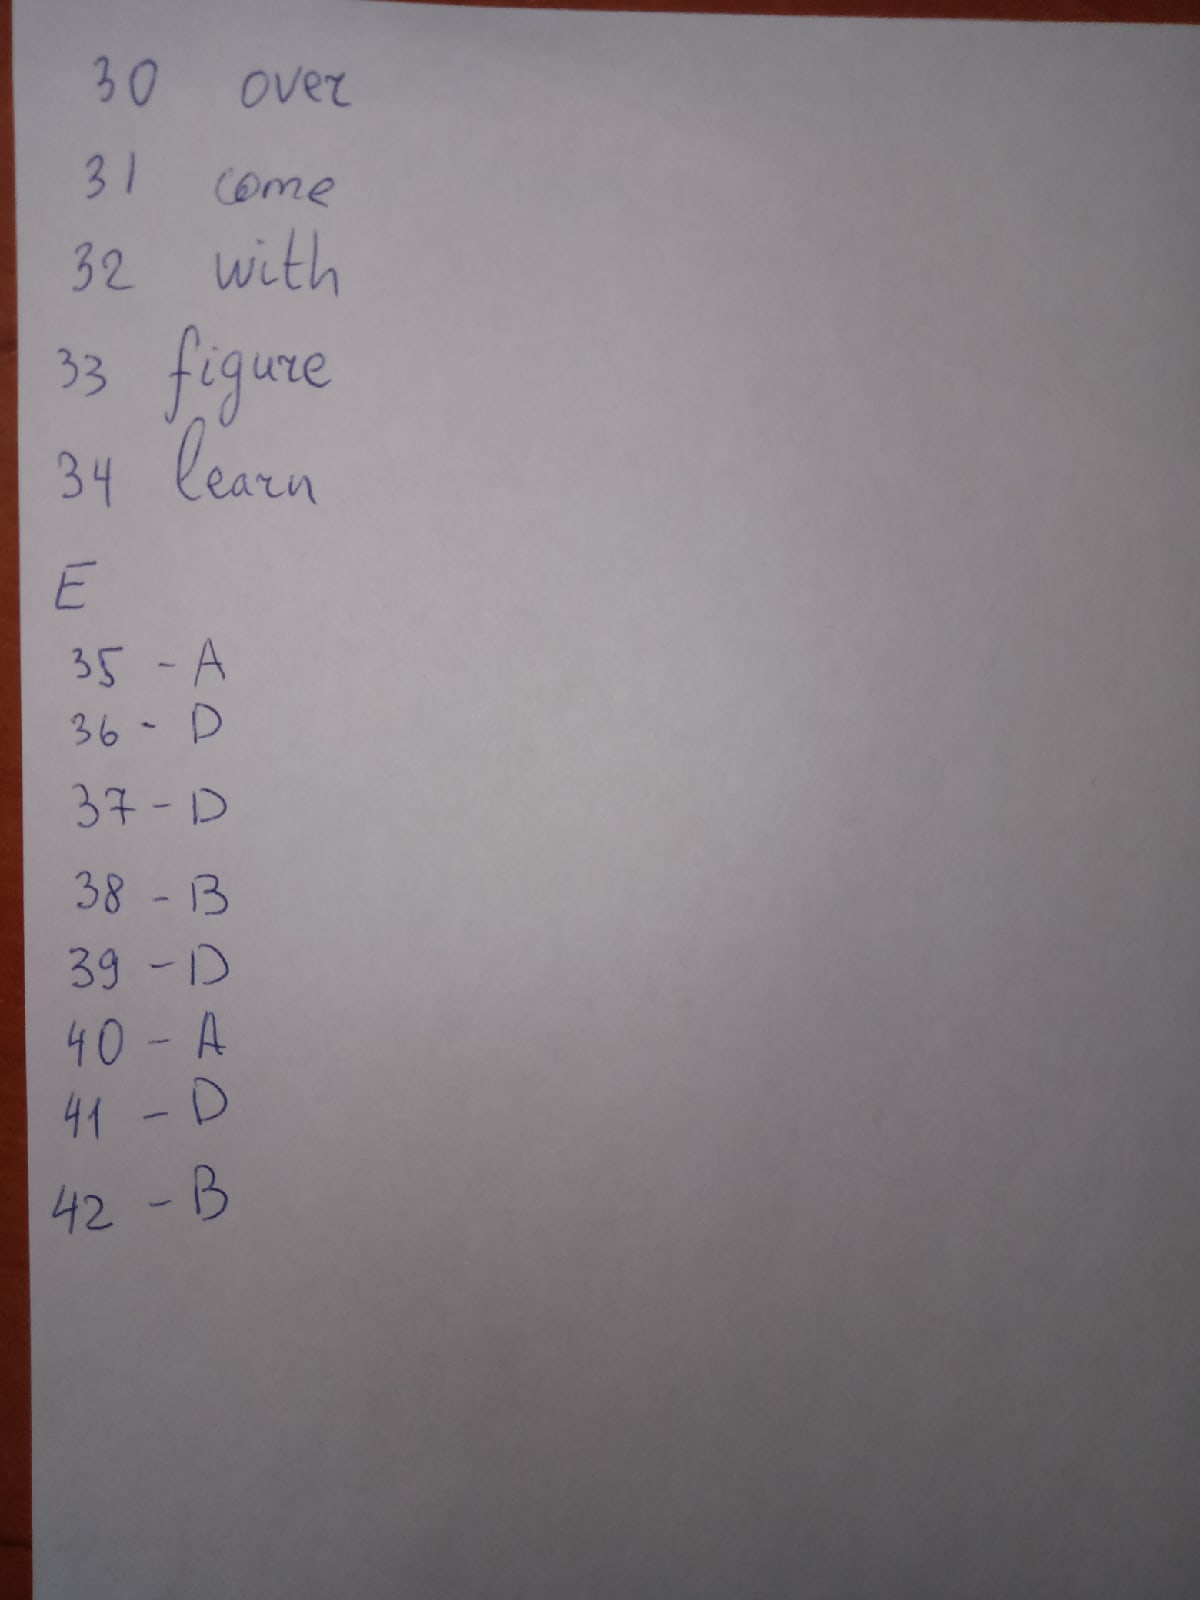 30 over
31 come
32 with
33 figure
34 learn
E
35 - A
36 - D
37 - D
38 - B
39 - D
40 - A
41 - D
42 - B